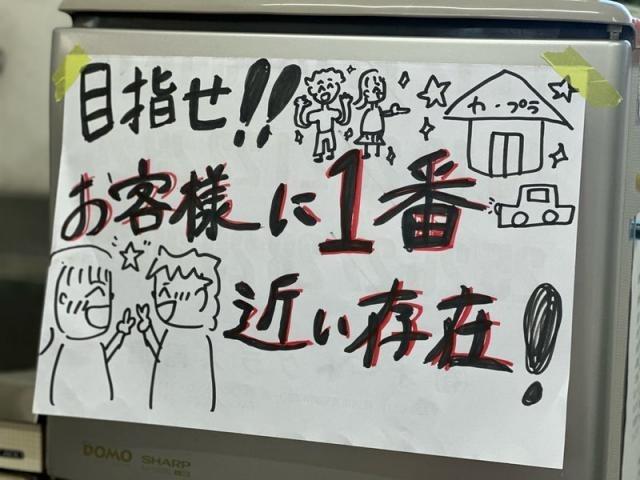 目指せ!!
カ・プラ
お客様に1番
近い存在!
DOMO SHARP